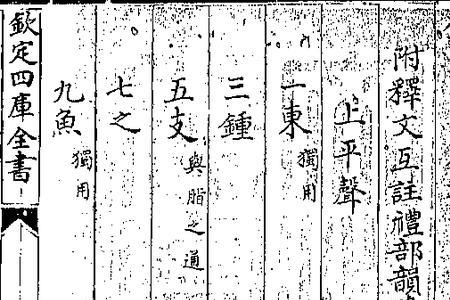 附釋文互註禮部韻
上平聲
一東獨用
三鍾
五支與脂之通
七之
九魚獨用
欽定四庫全書